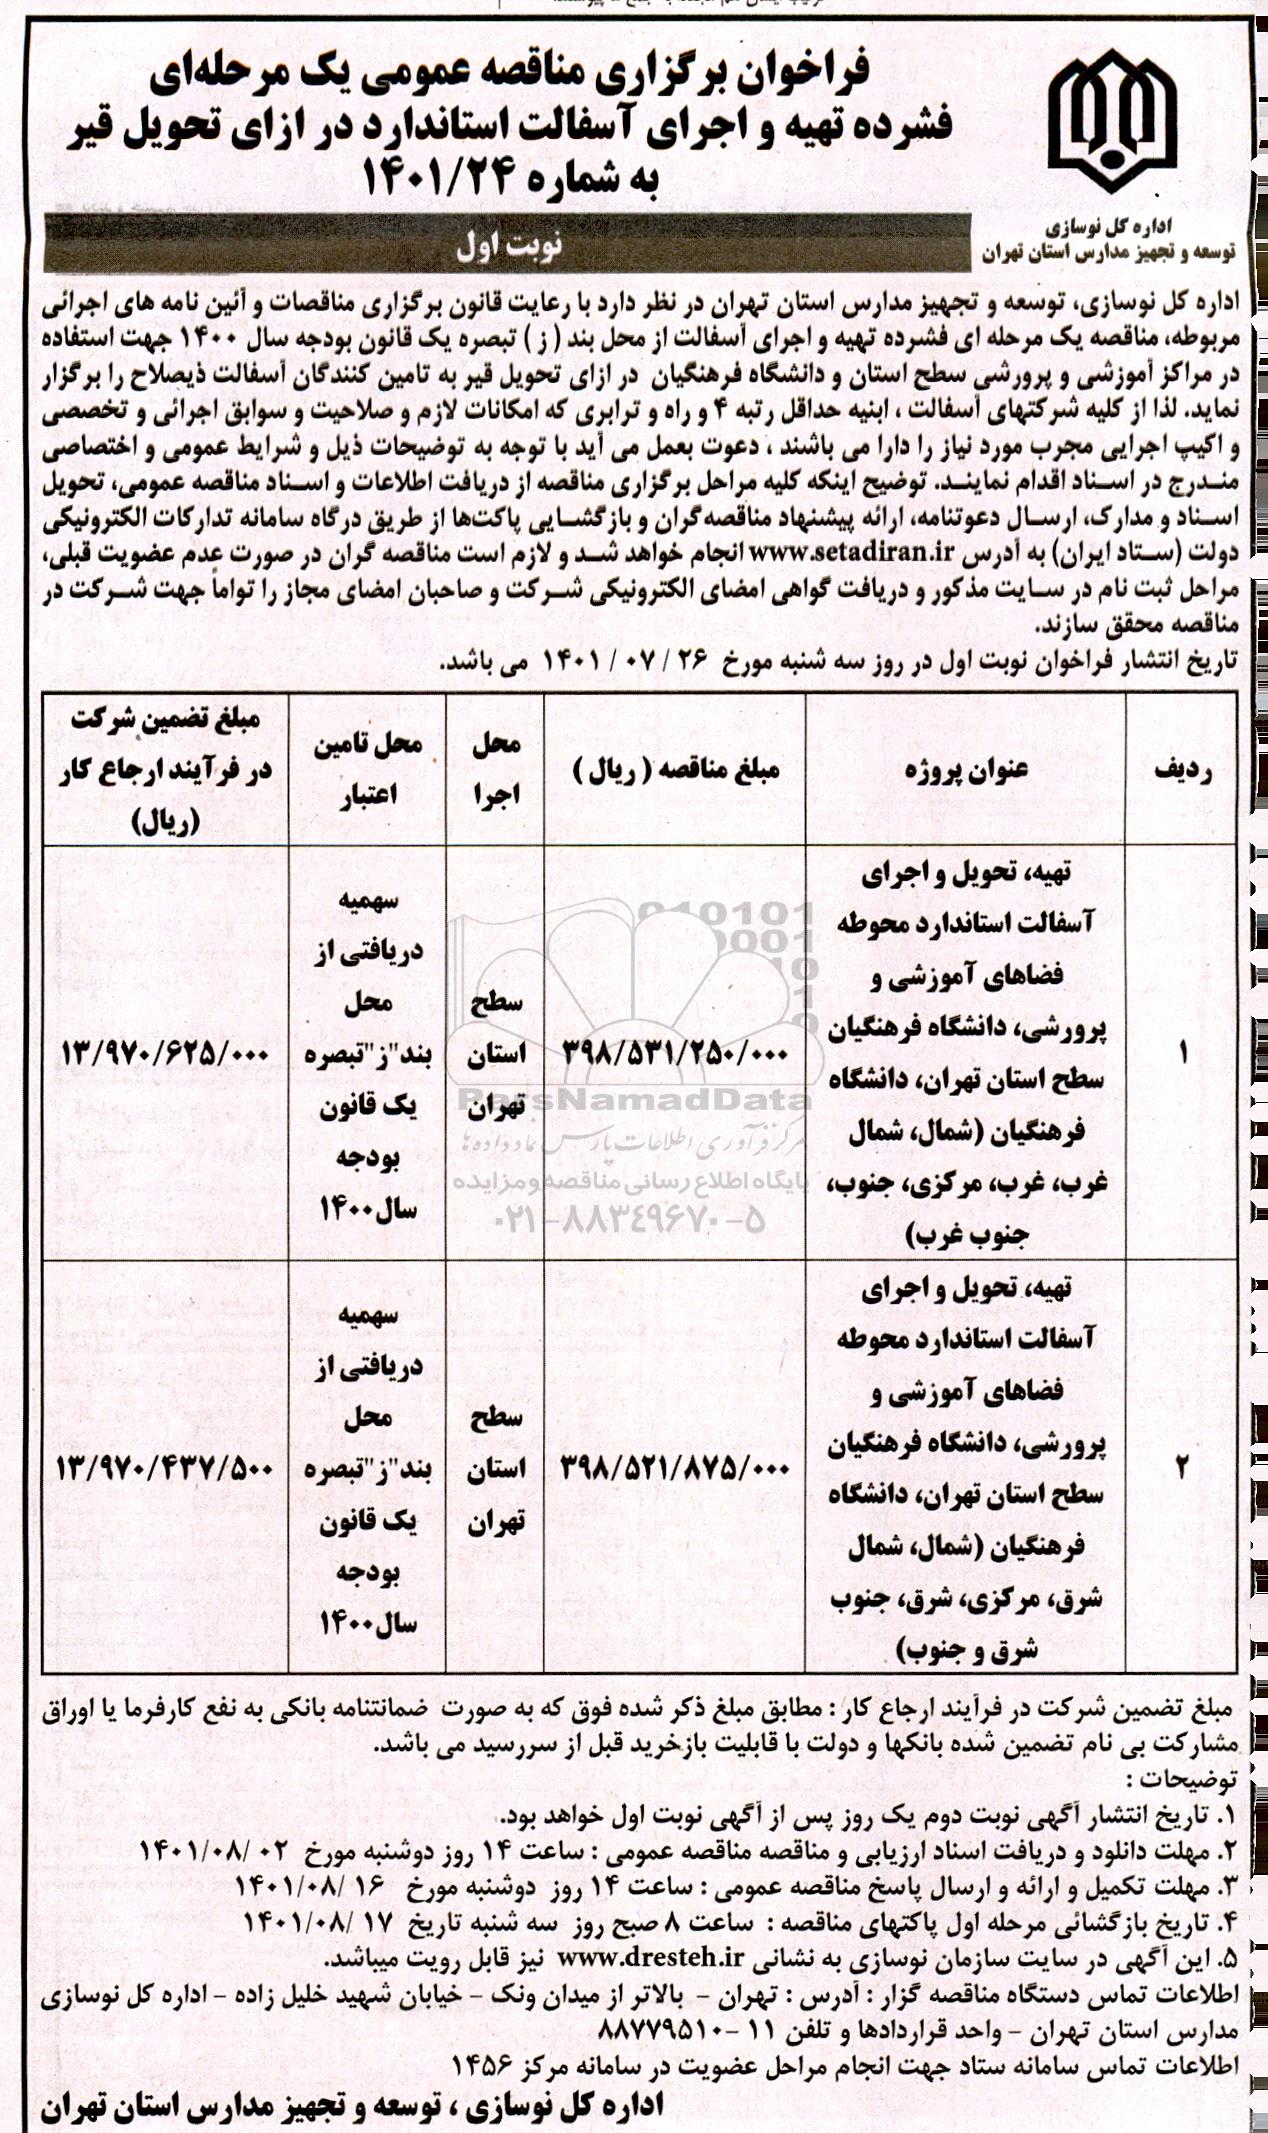 فراخوان برگزاری مناقصه عمومی یک مرحله‌ای
فشرده تهیه و اجرای آسفالت استاندارد در ازای تحویل قیر
به شماره ۱۴۰۱/۲۴
اداره کل نوسازی
توسعه و تجهیز مدارس استان تهران
نوبت اول
اداره کل نوسازی، توسعه و تجهیز مدارس استان تهران در نظر دارد با رعایت قانون برگزاری مناقصات و آئین نامه های اجرائی
مربوطه، مناقصه یک مرحله ای فشرده تهیه و اجرای آسفالت از محل بند ( ز ) تبصره یک قانون بودجه سال ۱۴۰۰ جهت استفاده
در مراکز آموزشی و پرورشی سطح استان و دانشگاه فرهنگیان در ازای تحویل قیر به تامین کنندگان آسفالت ذیصلاح را برگزار
نماید. لذا از کلیه شرکتهای آسفالت ، ابنیه حداقل رتبه ۴ و راه و ترابری که امکانات لازم و صلاحیت و سوابق اجرائی و تخصصی
و اکیپ اجرایی مجرب مورد نیاز را دارا می باشند ، دعوت بعمل می آید با توجه به توضیحات ذیل و شرایط عمومی و اختصاصی
مندرج در اسناد اقدام نمایند. توضیح اینکه کلیه مراحل برگزاری مناقصه از دریافت اطلاعات و اسناد مناقصه عمومی، تحویل
اسناد و مدارک، ارسال دعوتنامه، ارائه پیشنهاد مناقصه‌گران و بازگشایی پاکت‌ها از طریق درگاه سامانه تدارکات الکترونیکی
دولت (ستاد ایران) به آدرس www.setadiran.ir انجام خواهد شد و لازم است مناقصه گران در صورت عدم عضویت قبلی،
مراحل ثبت نام در سایت مذکور و دریافت گواهی امضای الکترونیکی شرکت و صاحبان امضای مجاز را تواماً جهت شرکت در
مناقصه محقق سازند.
تاریخ انتشار فراخوان نوبت اول در روز سه شنبه مورخ ۲۶ / ۰۷ / ۱۴۰۱ می باشد.
ردیف
عنوان پروژه
مبلغ مناقصه ( ریال )
محل
اجرا
محل تامین
اعتبار
مبلغ تضمین شرکت
در فرآیند ارجاع کار
(ریال)
۱
تهیه، تحویل و اجرای
آسفالت استاندارد محوطه
فضاهای آموزشی و
پرورشی، دانشگاه فرهنگیان
سطح استان تهران، دانشگاه
فرهنگیان (شمال، شمال
غرب، غرب، مرکزی، جنوب،
جنوب غرب)
۳۹۸/۵۳۱/۲۵۰/۰۰۰
سطح
استان
تهران
سهمیه
دریافتی از
محل
بند"ز"تبصره
یک قانون
بودجه
سال۱۴۰۰
۱۳/۹۷۰/۶۲۵/۰۰۰
۲
تهیه، تحویل و اجرای
آسفالت استاندارد محوطه
فضاهای آموزشی و
پرورشی، دانشگاه فرهنگیان
سطح استان تهران، دانشگاه
فرهنگیان (شمال، شمال
شرق، مرکزی، شرق، جنوب
شرق و جنوب)
۳۹۸/۵۲۱/۸۷۵/۰۰۰
سطح
استان
تهران
سهمیه
دریافتی از
محل
بند"ز"تبصره
یک قانون
بودجه
سال۱۴۰۰
۱۳/۹۷۰/۴۳۷/۵۰۰
ParsNamadData
مرکز فرآوری اطلاعات پارس نماد داده ها
پایگاه اطلاع رسانی مناقصه و مزایده
۰۲۱-۸۸۳۴۹۶۷۰-۵
مبلغ تضمین شرکت در فرآیند ارجاع کار : مطابق مبلغ ذکر شده فوق که به صورت ضمانتنامه بانکی به نفع کارفرما یا اوراق
مشارکت بی نام تضمین شده بانکها و دولت با قابلیت بازخرید قبل از سررسید می باشد.
توضیحات :
۱. تاریخ انتشار آگهی نوبت دوم یک روز پس از آگهی نوبت اول خواهد بود.
۲. مهلت دانلود و دریافت اسناد ارزیابی و مناقصه مناقصه عمومی : ساعت ۱۴ روز دوشنبه مورخ ۰۲ /۱۴۰۱/۰۸
۳. مهلت تکمیل و ارائه و ارسال پاسخ مناقصه عمومی : ساعت ۱۴ روز دوشنبه مورخ ۱۶ /۱۴۰۱/۰۸
۴. تاریخ بازگشائی مرحله اول پاکتهای مناقصه : ساعت ۸ صبح روز سه شنبه تاریخ ۱۷ /۱۴۰۱/۰۸
۵. این آگهی در سایت سازمان نوسازی به نشانی www.dresteh.ir نیز قابل رویت میباشد.
اطلاعات تماس دستگاه مناقصه گزار : آدرس : تهران - بالاتر از میدان ونک - خیابان شهید خلیل زاده - اداره کل نوسازی
مدارس استان تهران - واحد قراردادها و تلفن ۱۱ -۸۸۷۷۹۵۱۰
اطلاعات تماس سامانه ستاد جهت انجام مراحل عضویت در سامانه مرکز ۱۴۵۶
اداره کل نوسازی ، توسعه و تجهیز مدارس استان تهران